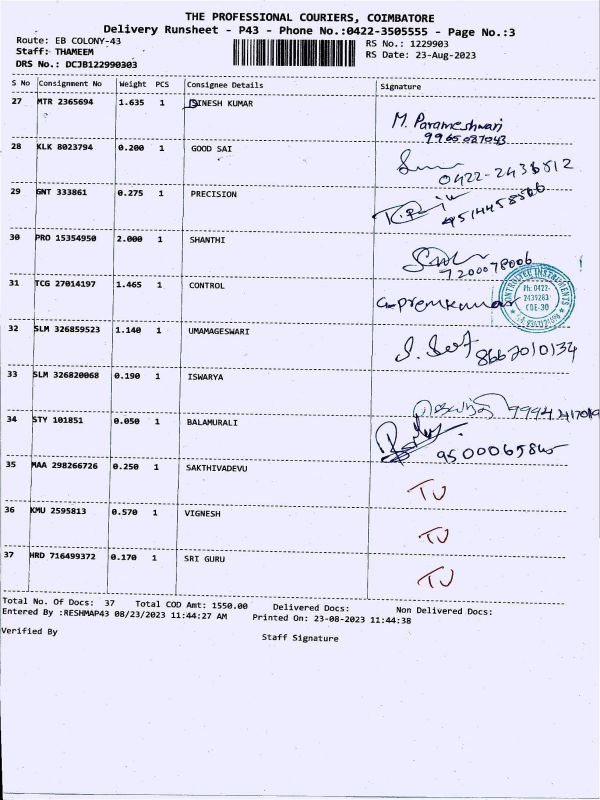 THE PROFESSIONAL COURIERS, COIMBATORE
Delivery Runsheet - P43 - Phone No.:0422-3505555 - Page No.:3
Route: EB COLONY-43 RS No.: 1229903
Staff: THAMEEM RS Date: 23-Aug-2023
DRS No.: DCJB122990303
S No Consignment No Weight PCS Consignee Details Signature
27 MTR 2365694 1.635 1 DINESH KUMAR
M. Parameshwari
9965087043
28 KLK 8023794 0.200 1 GOOD SAI
0422-2436512
29 GNT 333861 0.275 1 PRECISION
30 PRO 15354950 2.000 1 SHANTHI
7200078006
31 TCG 27014197 1.465 1 CONTROL
G. Premkumar
CONTROLTEK INSTRUMENTS
Ph: 0422-
2431263
CBE-30
32 SLM 326859523 1.140 1 UMAMAGESWARI
8667010134
33 SLM 326820068 0.190 1 ISWARYA
34 STY 101851 0.050 1 BALAMURALI
35 MAA 298266726 0.250 1 SAKTHIVADEVU
TV
36 KMU 2595813 0.570 1 VIGNESH
TV
37 HRD 716499372 0.170 1 SRI GURU
TV
Total No. Of Docs: 37 Total COD Amt: 1550.00 Delivered Docs: Non Delivered Docs:
Entered By :RESHMAP43 08/23/2023 11:44:27 AM Printed On: 23-08-2023 11:44:38
Verified By Staff Signature